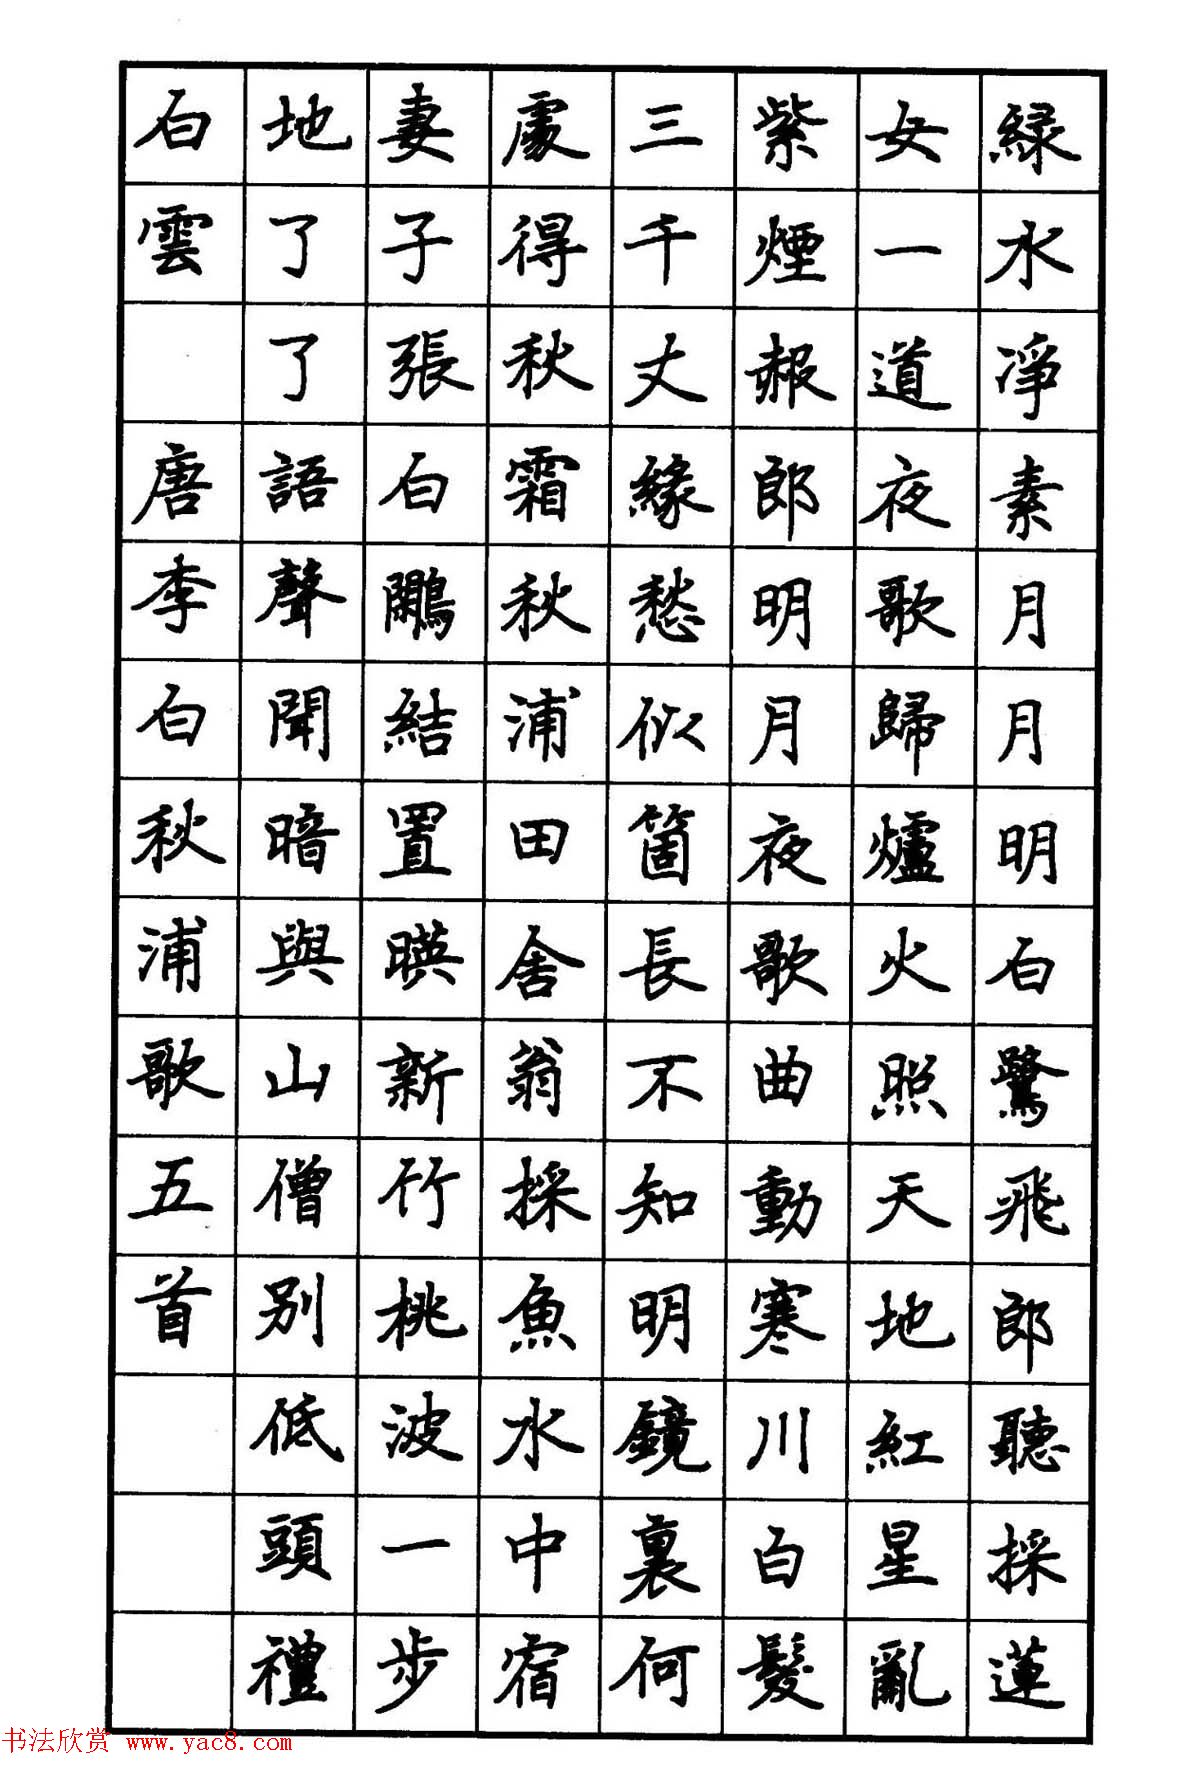 緑水凈素月月明白鷺飛郎聽採蓮
女一道夜歌歸爐火照天地紅星亂
紫煙赧郎明月夜歌曲動寒川白髮
三千丈緣愁似箇長不知明鏡裏何
處得秋霜秋浦田舍翁採魚水中宿
妻子張白鷳結罝暎新竹桃波一步
地了了語聲聞暗與山僧別低頭禮
白雲 唐李白秋浦歌五首
书法欣赏 www.yac8.com